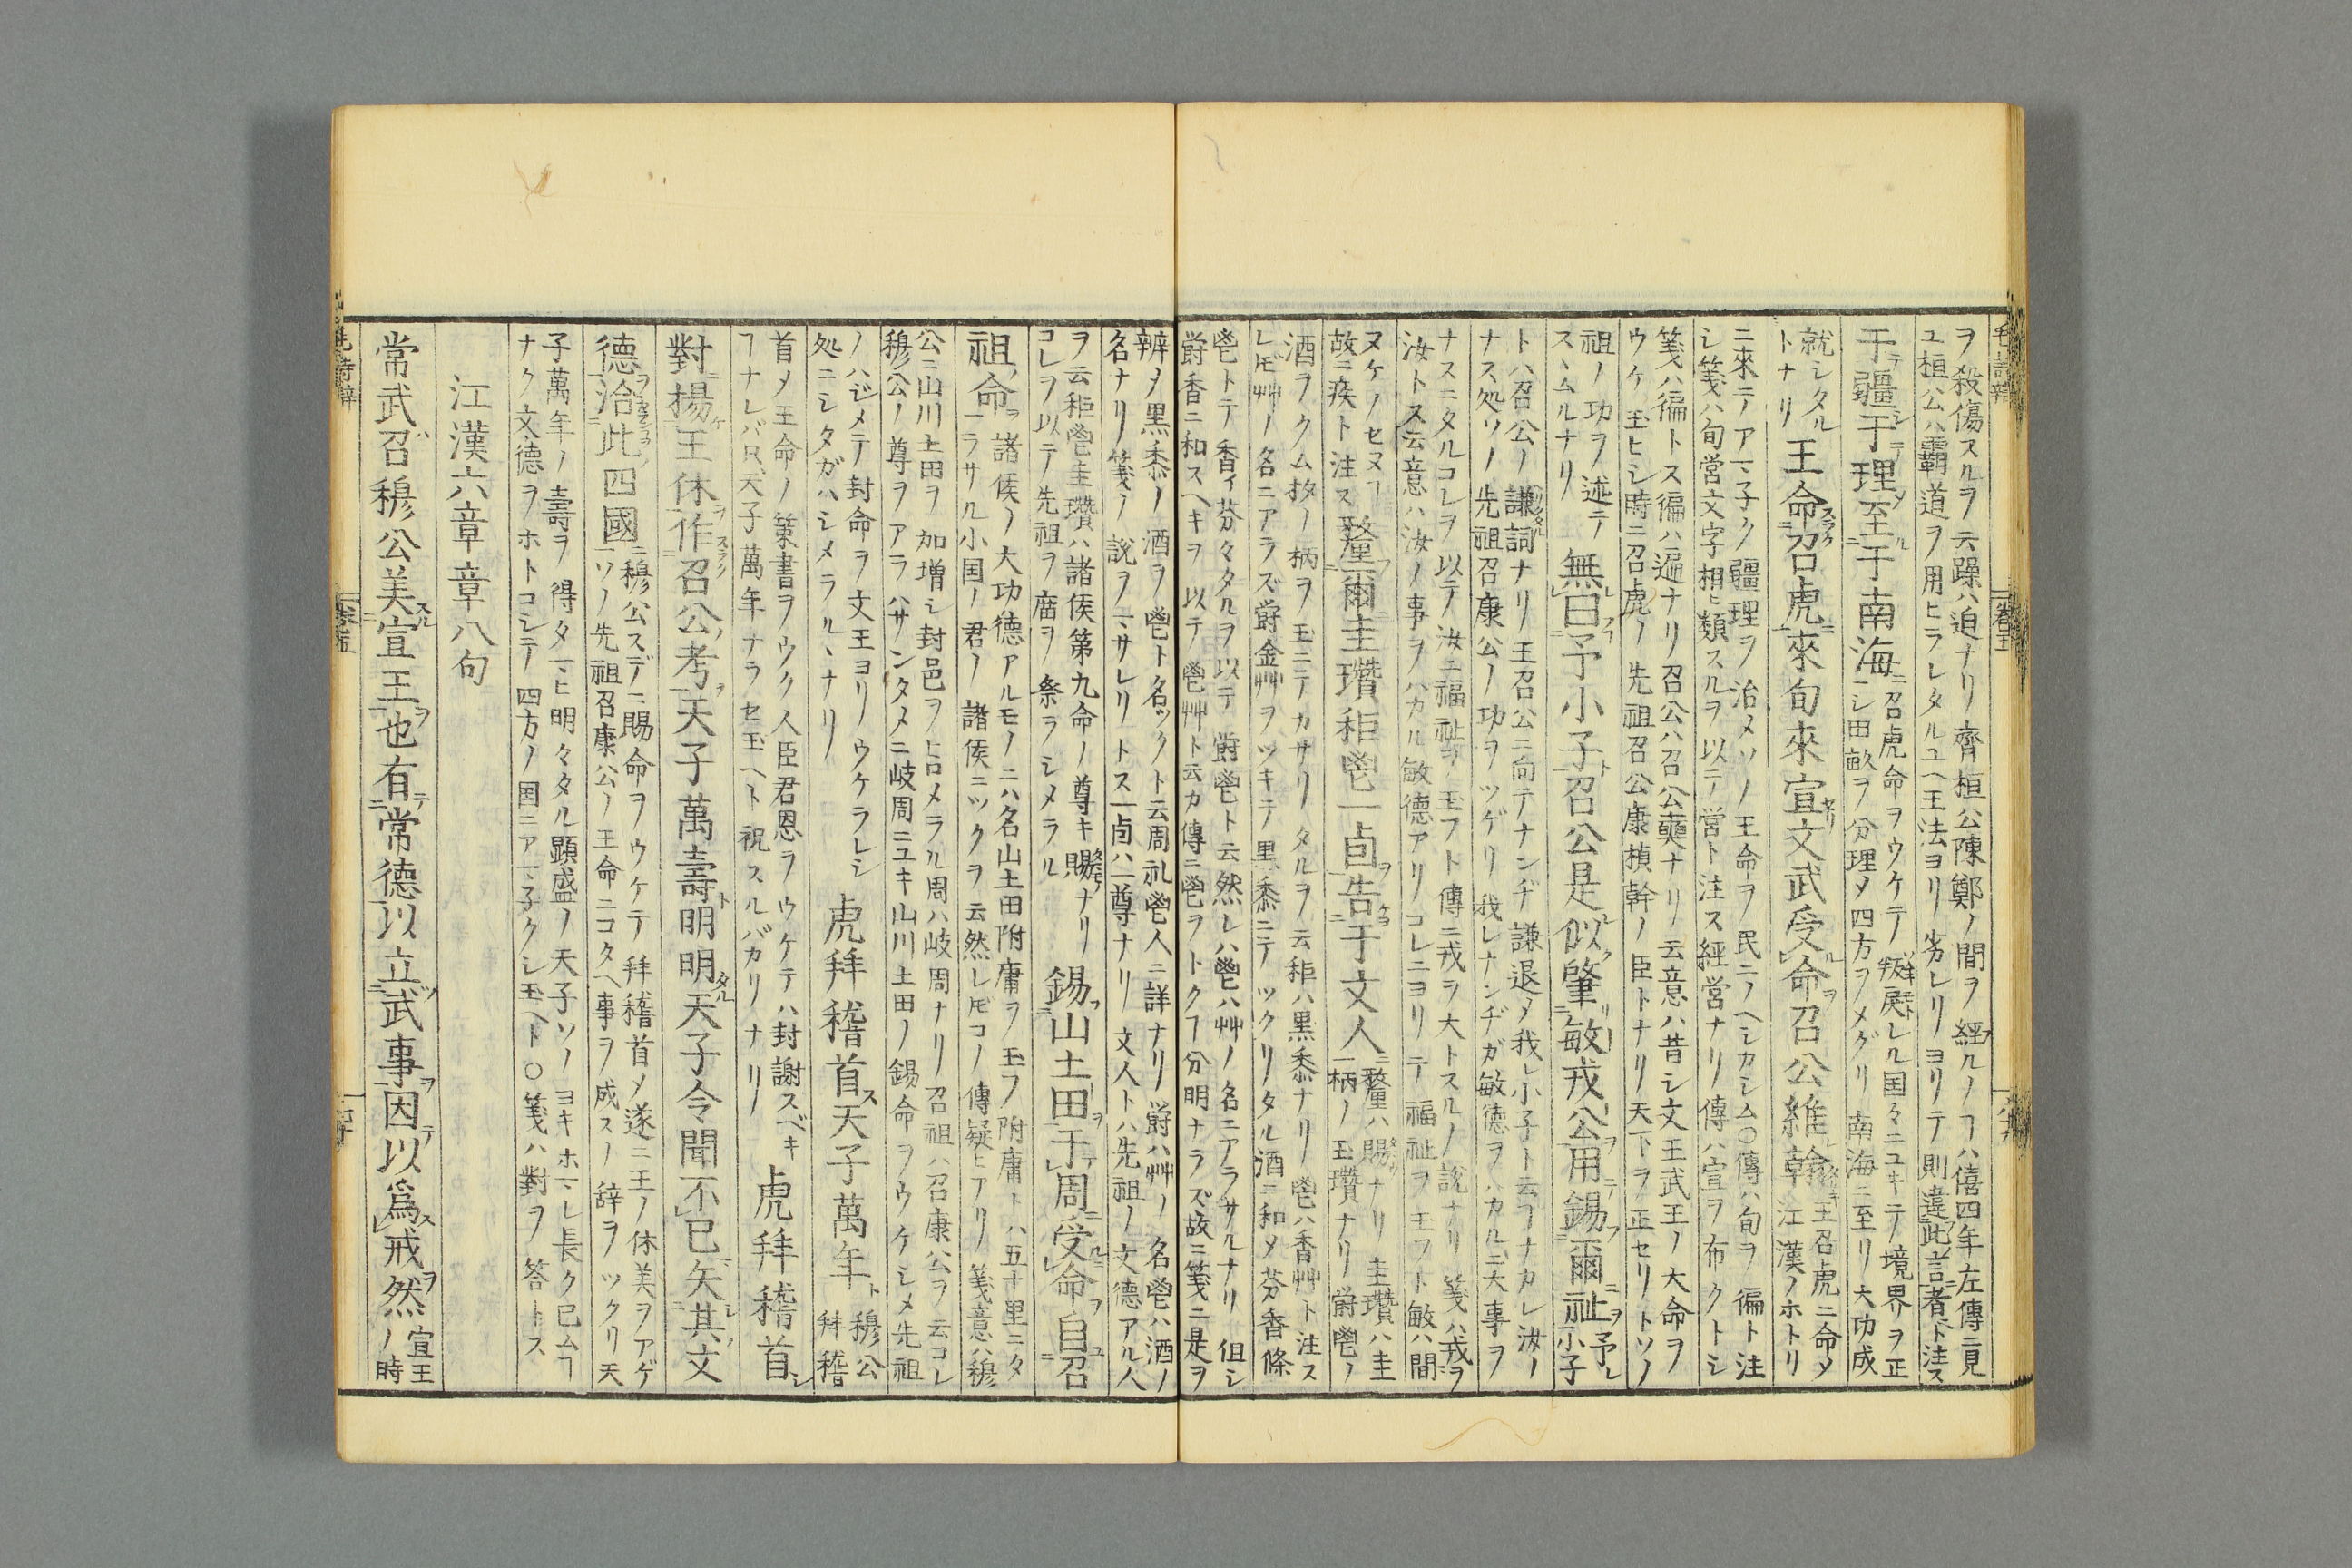 毛詩辨
卷五
ヲ殺傷スルヲ云躁ハ迫ナリ齊桓公陳鄭ノ間ヲ經ルノヿハ僖四年左傳ニ見
ユ桓公ハ霸道ヲ用ヒラレタルユヘ王法ヨリ劣レリヨリテ則違此言者ト注ス
于疆于理至于南海
召虎命ヲウケテ叛戾レル国々ニユキテ境界ヲ正
シ田畝ヲ分理メ四方ヲメグリ南海ニ至リ大功成
就シタル
トナリ
王命召虎來旬來宣文武受命召公維翰
王召虎ニ命メ
江漢ノホトリ
ニ來テアマ子ク疆理ヲ治メソノ王命ヲ民ニノヘシカシム○傳ハ旬ヲ徧ト注
シ箋ハ旬営文字相ヒ類スルヲ以テ営ト注ス經営ナリ傳ハ宣ヲ布クトシ
箋ハ徧トス徧ハ遍ナリ召公ハ召公奭ナリ云意ハ昔シ文王武王ノ大命ヲ
ウケ玉ヒシ時ニ召虎ノ先祖召公康楨幹ノ臣トナリ天下ヲ正セリトソノ
祖ノ功ヲ述テ
スヽムルナリ
無曰予小子召公是似肇敏戎公用錫爾祉
予レ
小子
トハ召公ノ謙詞ナリ王召公ニ向テナンヂ謙退メ我レ小子ト云ヿナカレ汝ノ
ナス処ソノ先祖召康公ノ功ヲツゲリ我レナンヂガ敏德ヲハカルニ大事ヲ
ナスニタルコレヲ以テ汝ニ福祉ヲ玉フト傳ニ戎ヲ大トスルノ說ナリ箋ハ戎ヲ
汝トス云意ハ汝ノ事ヲハカル敏德アリコレニヨリテ福祉ヲ玉フト敏ハ間
ヌケノセヌヿ
故ニ疾ト注ス
釐爾圭瓚秬鬯一卣告于文人
釐ハ賜ナリ圭瓚ハ圭
柄ノ玉瓚ナリ欝鬯ノ
酒ヲクム抅ノ柄ヲ玉ニテカサリタルヲ云秬ハ黒黍ナリ鬯ハ香艸ト注ス
レ𪜈艸ノ名ニアラズ欝金艸ヲツキテ黒黍ニテツクリタル酒ニ和メ芬香條
鬯トテ香ィ芬々タルヲ以テ欝鬯ト云然レハ鬯ハ艸ノ名ニアラサルナリ但シ
欝香ニ和スヘキヲ以テ鬯艸ト云カ傳ニ鬯ヲトクヿ分明ナラズ故ニ箋ニ是ヲ
辨メ黒黍ノ酒ヲ鬯ト名ツクト云周礼鬯人ニ詳ナリ欝ハ艸ノ名鬯ハ酒ノ
名ナリ箋ノ說ヲマサレリトス一卣ハ一尊ナリ文人トハ先祖ノ文德アル人
ヲ云秬鬯圭瓚ハ諸侯第九命ノ尊キ賜ナリ
コレヲ以テ先祖ヲ庿ヲ祭ラシメラル
錫山土田于周受命自召
祖命
諸侯ノ大功德アルモノニハ名山土田附庸ヲ玉フ附庸トハ五十里ニタ
ラサル小国ノ君ノ諸侯ニツクヲ云然レ𪜈コノ傳疑ヒアリ箋意ハ穆
公ニ山川土田ヲ加増シ封邑ヲ占メラル周ハ岐周ナリ召祖ハ召康公ヲ云コレ
穆公ノ尊ヲアラハサンタメニ岐周ニユキ山川土田ノ錫命ヲウケシメ先祖
ノハジメテ封命ヲ文王ヨリウケラレシ
処ニシタガハシメラルヽナリ
虎拜稽首天子萬年
穆公
拜稽
首メ王命ノ策書ヲウク人臣君恩ヲウケテハ封謝スベキ
ヿナレバ只天子萬年ナラセ玉ヘト祝スルバカリナリ
虎拜稽首
對揚王休作召公考天子萬壽明明天子令聞不已矢其文
德洽此四國
穆公スデニ賜命ヲウケテ拜稽首メ遂ニ王ノ休美ヲアゲ
ソノ先祖召康公ノ王命ニコタヘ事ヲ成スノ辞ヲツクリ天
子萬年ノ壽ヲ得タマヒ明々タル顕盛ノ天子ソノヨキホマレ長ク已ムヿ
ナク文德ヲホトコシテ四方ノ国ニアマ子クシ玉ヘト○箋ハ對ヲ答トス
江漢六章章八句
常武召穆公美宣王也有常德以立武事因以爲戒然
宣王
ノ時
毛詩辨
卷五